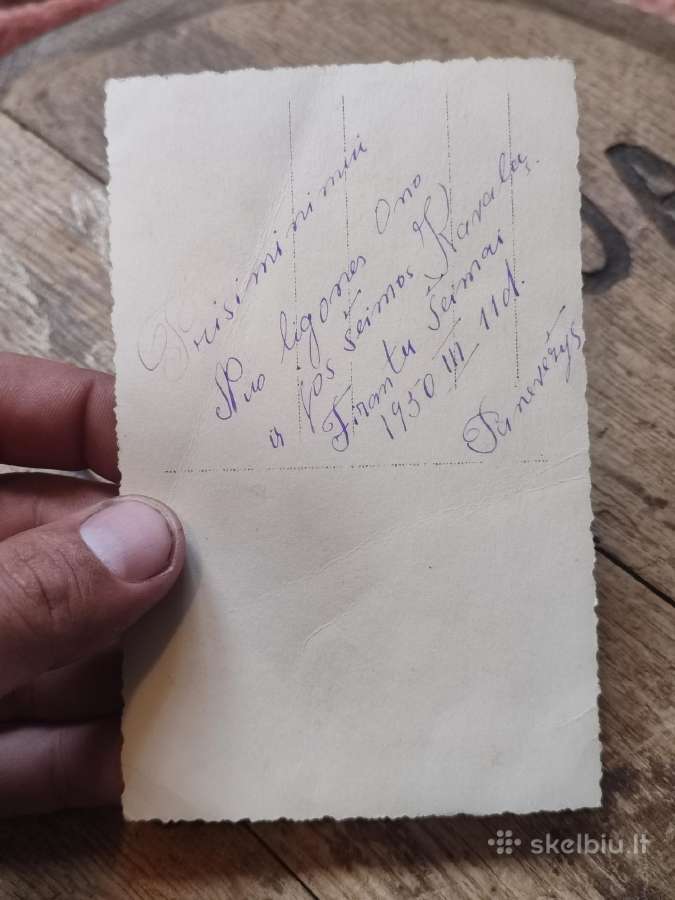 Prisiminimui
Nuo ligonės Ono
ir jos šeimos Kavalą.
Firantu šeimai
1950 III 11 d.
Panevėžys
skelbiu.lt